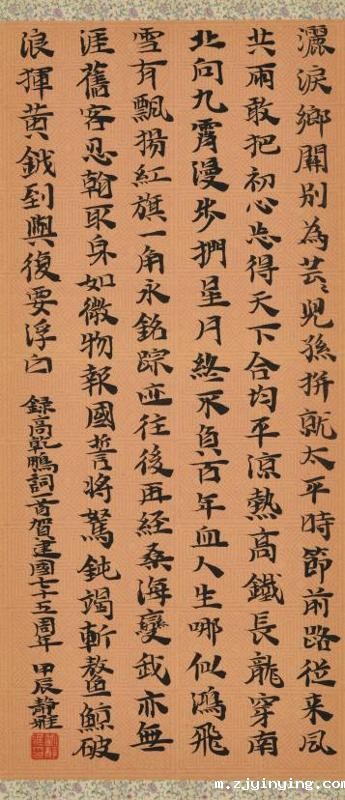 灑淚鄉關別為芸芸兒孫拚就太平時節前路從來風
共雨敢把初心忘得天下合均平涼熱高鐵長龍穿南
北向九霄漫步捫星月終不負百年血人生哪似鴻飛
雪有飄揚紅旗一角永銘踪迹往後再經桑海變我亦無
涯舊客忍翰取身如微物報國誓將駑鈍竭斬鰲鯨破
浪揮黃鉞到興復要浮白
録高乾鵬詞一首賀建國七十五周年 甲辰靜
m.zjyinying.com